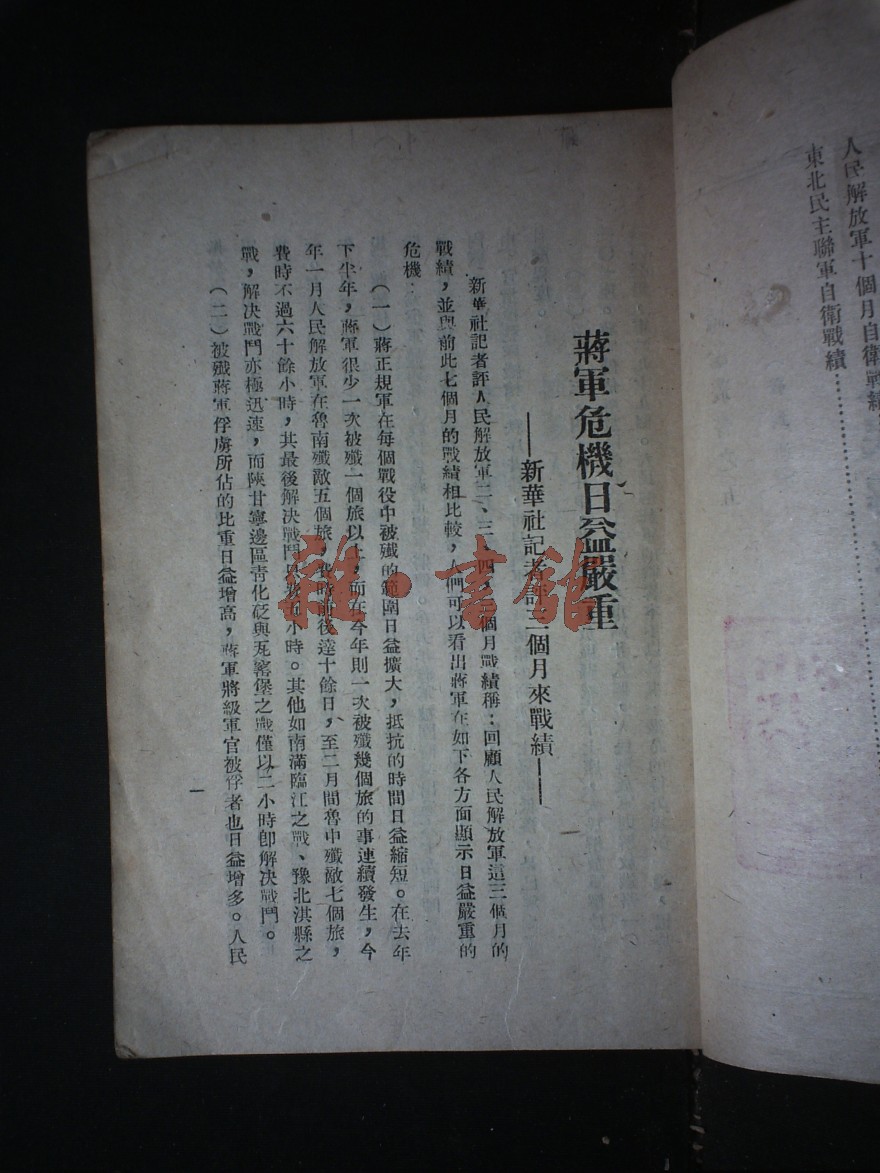 人民解放軍十個月自衛戰績
東北民主聯軍自衛戰績……………
蔣軍危機日益嚴重
——新華社記者評三個月來戰績——
新華社記者評人民解放軍二、三、四三個月戰績稱：回顧人民解放軍這三個月的
戰績，並與前此七個月的戰績相比較，人們可以看出蔣軍在如下各方面顯示日益嚴重的
危機：
（一）蔣正規軍在每個戰役中被殲的範圍日益擴大，抵抗的時間日益縮短。在去年
下半年，蔣軍很少一次被殲一個旅以上，而在今年則一次被殲幾個旅的事連續發生，今
年一月人民解放軍在魯南殲敵五個旅，費時前後達十餘日，至二月間魯中殲敵七個旅，
費時不過六十餘小時，其最後解決戰鬥只費九小時。其他如南滿臨江之戰、豫北淇縣之
戰，解决戰鬥亦極迅速，而陝甘寧邊區靑化砭與瓦窰堡之戰僅以二小時卽解决戰鬥。
（二）被殲蔣軍俘虜所佔的比重日益增高，蔣軍將級軍官被俘者也日益增多。人民
一
雜·書館